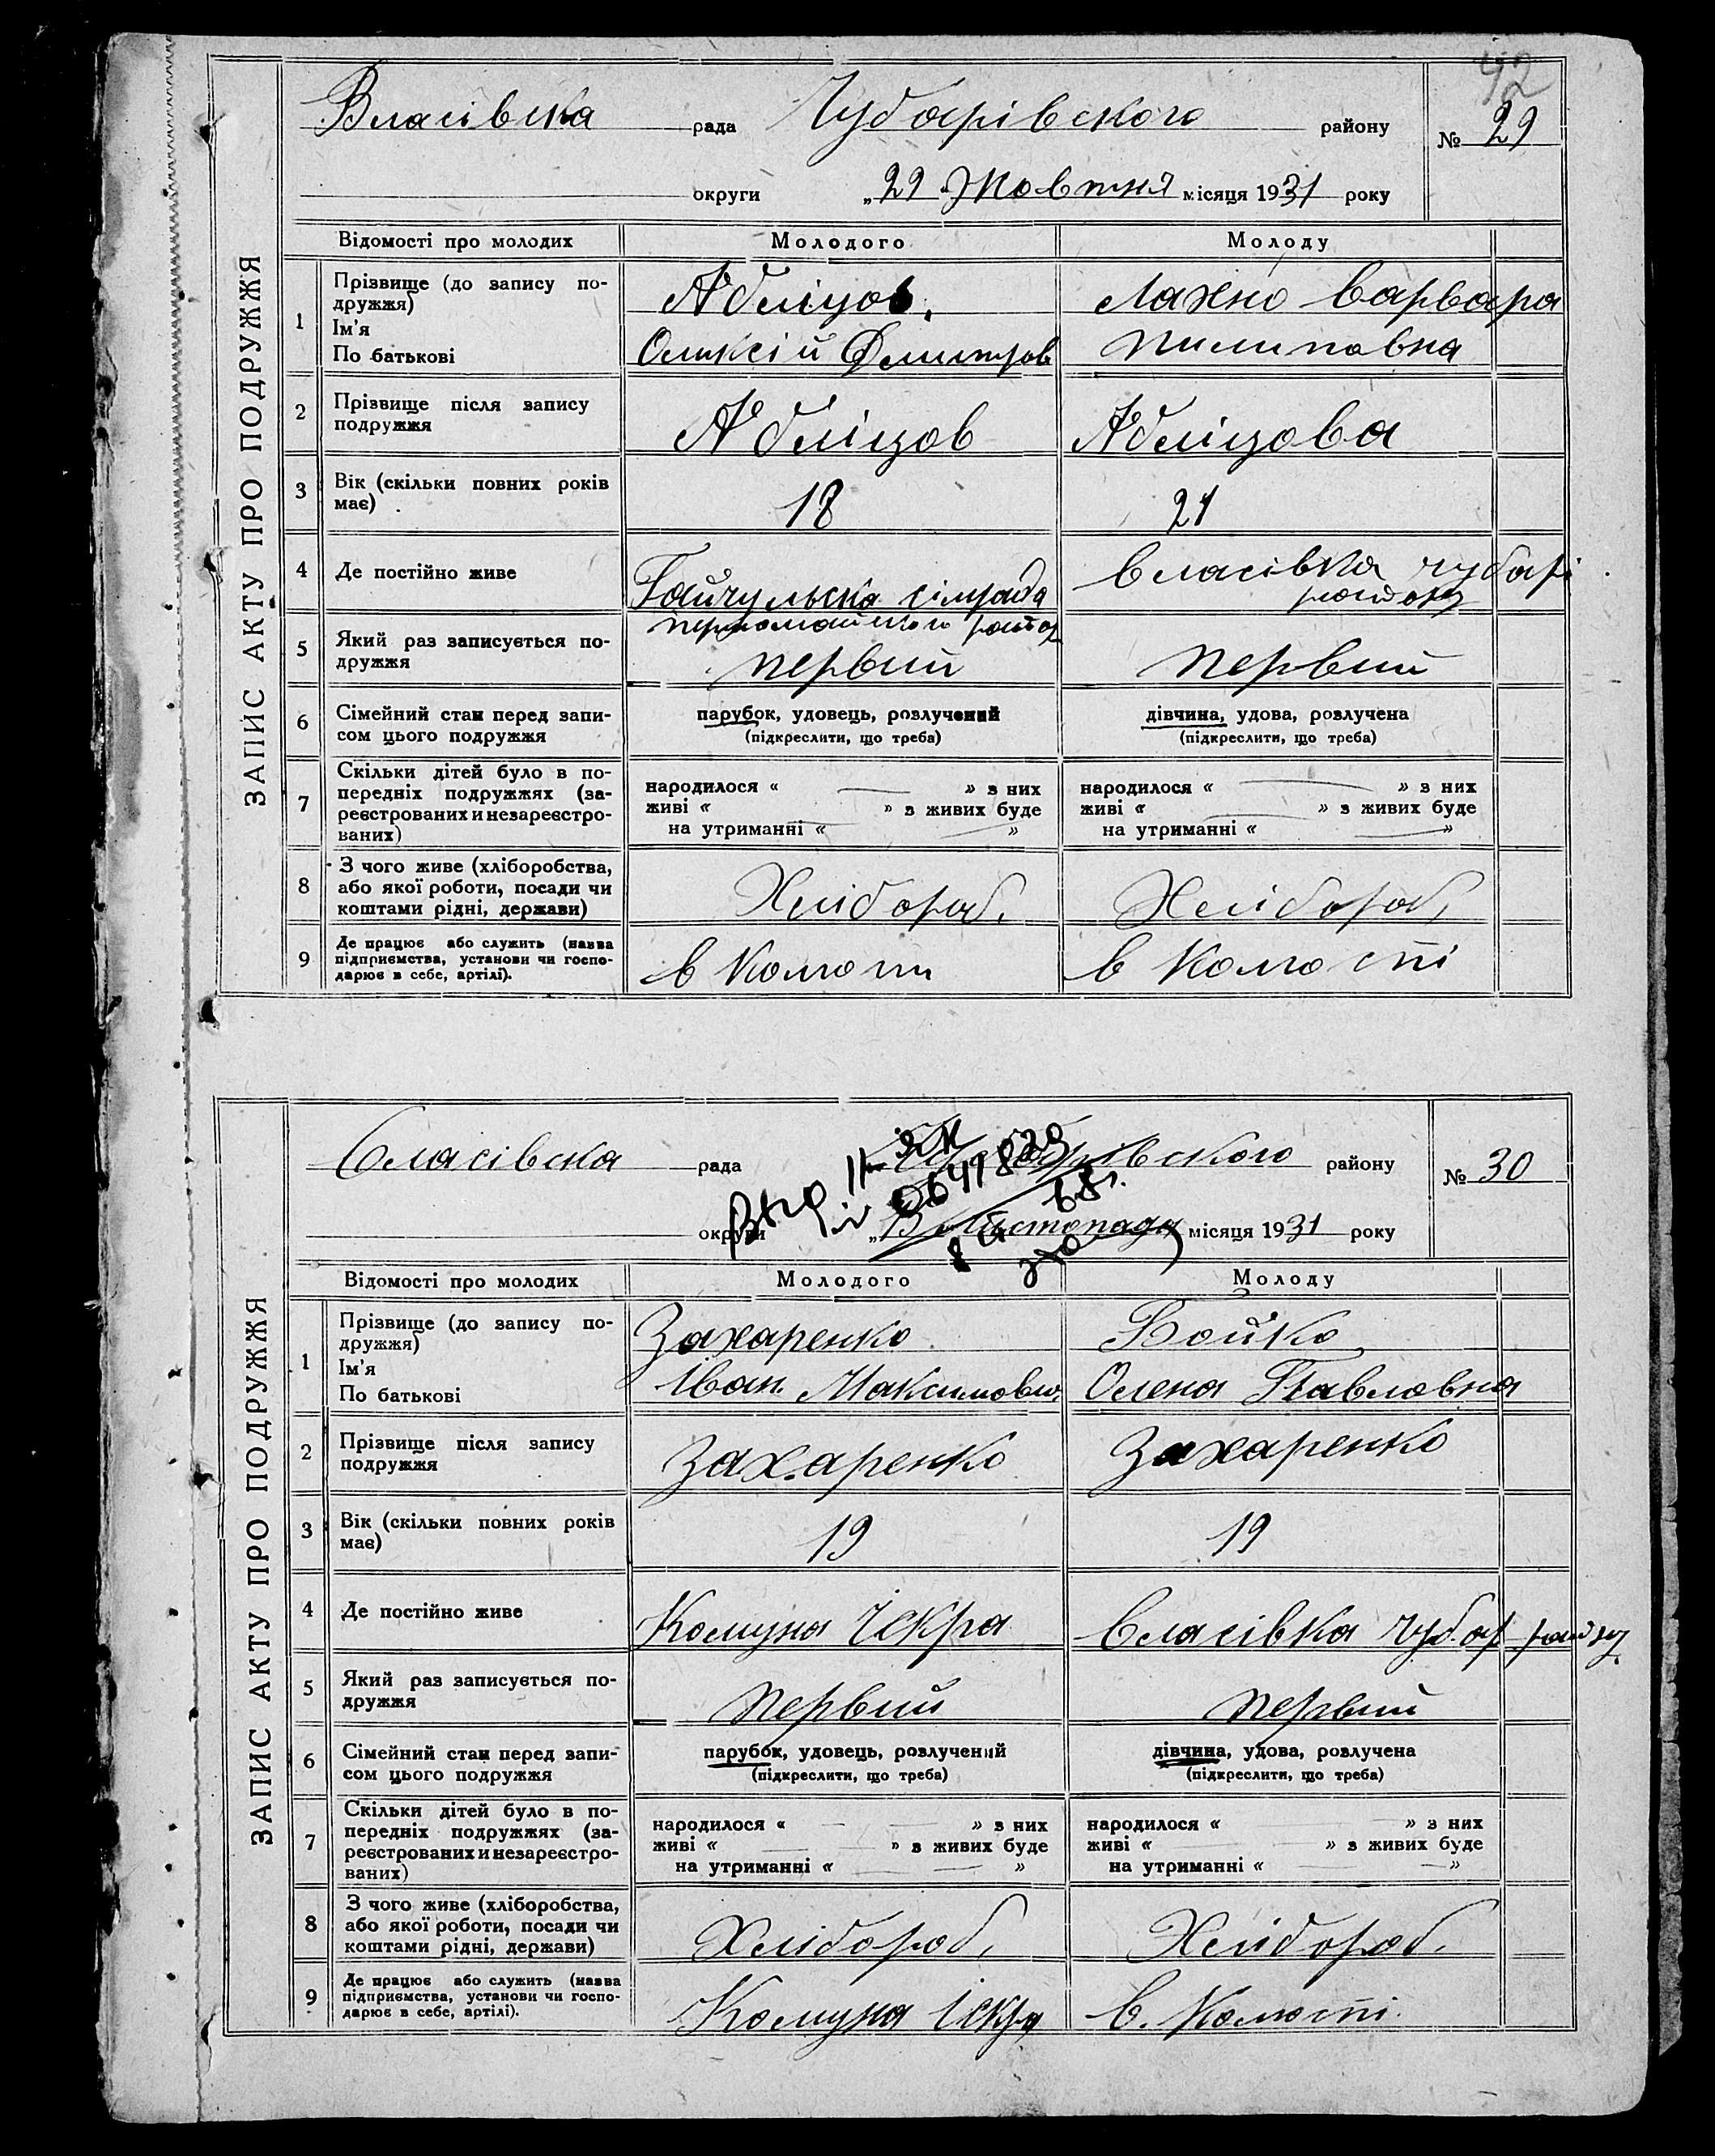 42
Власівска рада Чубарівского району № 29
округи „ 29 Жовтня місяця 1931 року
ЗАПИС АКТУ ПРО ПОДРУЖЖЯ
Відомості про молодих Молодого Молоду
1 Прізвище (до запису по-
дружжя)
Ім'я
По батькові
Абліцов.
Оликсій Дмитров
Лахно Варвара
Пилиповна
2 Прізвище після запису
подружжя
Абліцов Абліцова
3 Вік (скільки повних років
має)
18 21
4 Де постійно живе
Гайчульска сілрада
Власівка чубарі
району
5 Який раз записується по-
дружжя
первий первий
6 Сімейний стан перед запи-
сом цього подружжя
парубок, удовець, розлучений
(підкреслити, що треба)
дівчина, удова, розлучена
(підкреслити, що треба)
7 Скільки дітей було в по-
передніх подружжях (за-
реєстрованих и незареєстро-
ваних)
народилося « — » з них
живі « » з живих буде
на утриманні « — »
народилося « — » з них
живі « » з живих буде
на утриманні « — »
8 З чого живе (хліборобства,
або якої роботи, посади чи
коштами рідні, держави)
Хлібороб. Хлібороб.
9 Де працює або служить (назва
підприємства, установи чи госпо-
дарює в себе, артілі).
в колгоспі
Власівска рада району № 30
округи „ 13 Листопада місяця 1931 року
0641829
68г.
ЗАПИС АКТУ ПРО ПОДРУЖЖЯ
Відомості про молодих Молодого Молоду
1 Прізвище (до запису по-
дружжя)
Ім'я
По батькові
Захаренко
Іван Максимович
Бойко
Олена Павловна
2 Прізвище після запису
подружжя
Захаренко Захаренко
3 Вік (скільки повних років
має)
19 19
4 Де постійно живе
Комуна Іскра Власівка чубар району
5 Який раз записується по-
дружжя
первий первий
6 Сімейний стан перед запи-
сом цього подружжя
парубок, удовець, розлучений
(підкреслити, що треба)
дівчина, удова, розлучена
(підкреслити, що треба)
7 Скільки дітей було в по-
передніх подружжях (за-
реєстрованих и незареєстро-
ваних)
народилося « — » з них
живі « — » з живих буде
на утриманні « — »
народилося « — » з них
живі « — » з живих буде
на утриманні « — »
8 З чого живе (хліборобства,
або якої роботи, посади чи
коштами рідні, держави)
Хлібороб. Хлібороб.
9 Де працює або служить (назва
підприємства, установи чи госпо-
дарює в себе, артілі).
Комуна Іскра